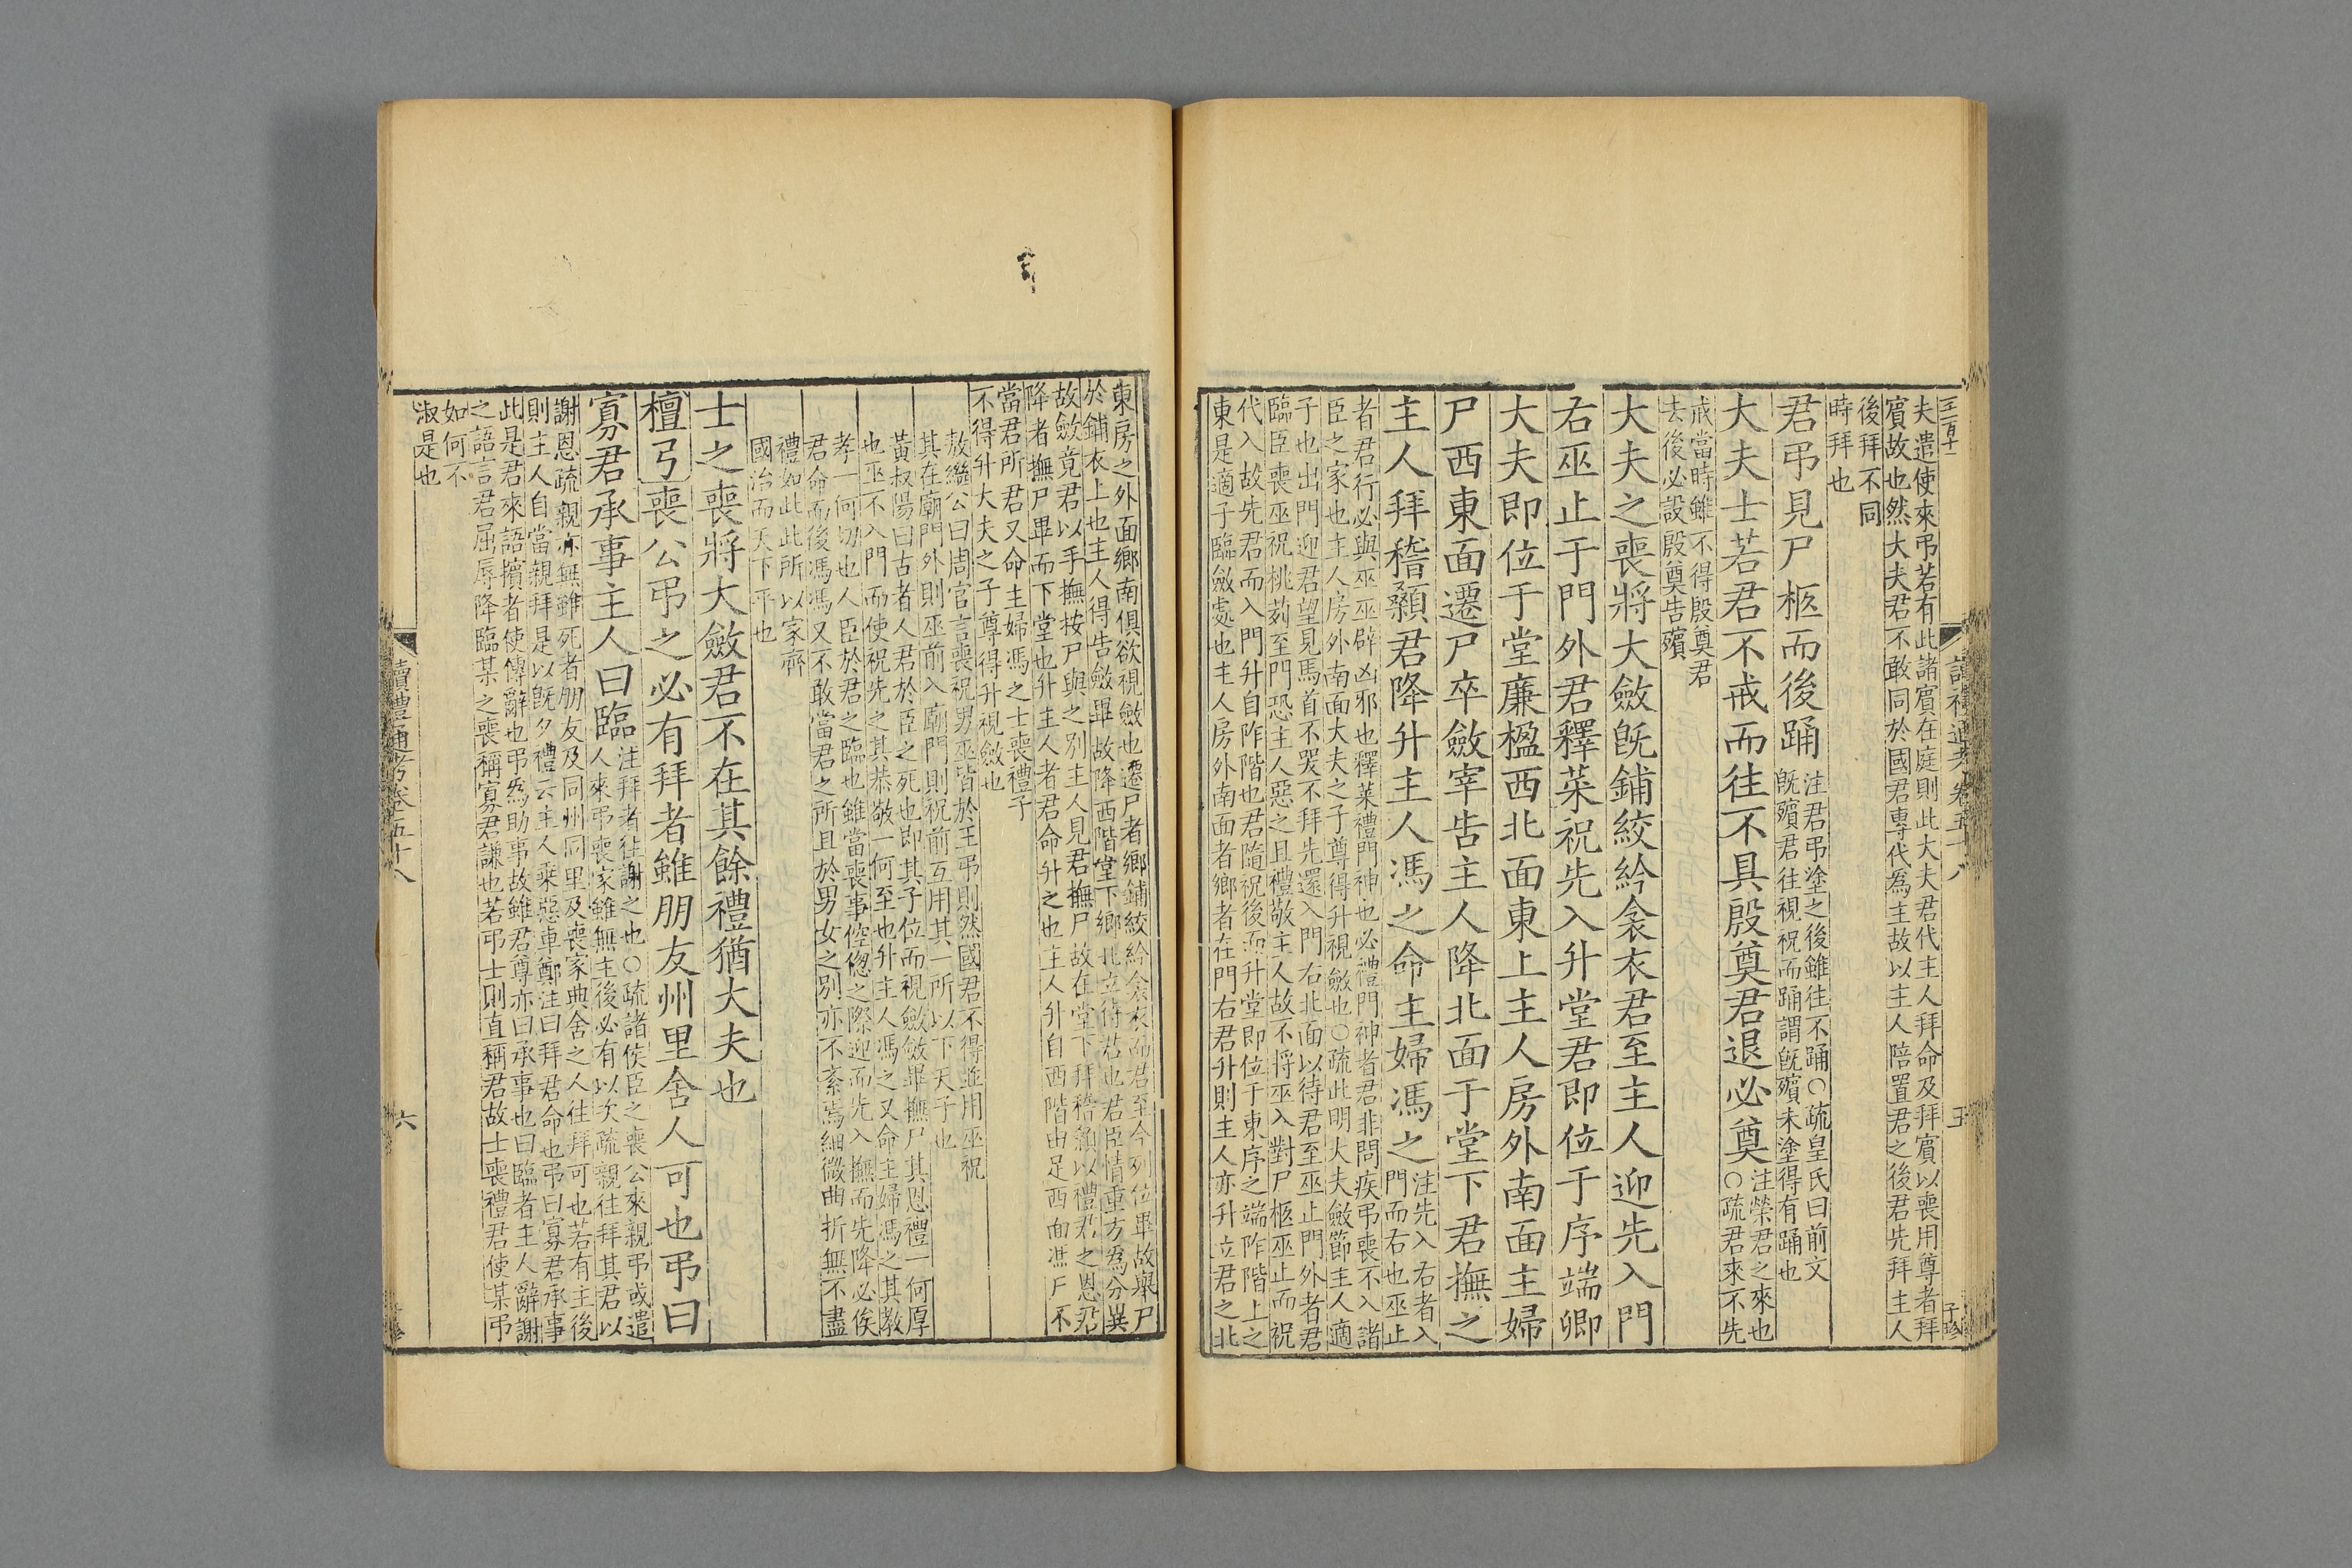 三百十二
夫遣使來弔若有此諸賓在庭則此大夫君代主人拜命及拜賓以喪用尊者拜
賓故也然大夫君不敢同於國君專代為主故以主人陪置君之後君先拜主人
後拜不同
時拜也
君弔見尸柩而後踊
注君弔塗之後雖往不踊○疏皇氏曰前文
既殯君往視祝而踊謂既殯未塗得有踊也
大夫士若君不戒而往不具殷奠君退必奠
注榮君之來也
○疏君來不先
戒當時雖不得殷奠君
去後必設殷奠告殯
大夫之喪將大斂既鋪絞紟衾衣君至主人迎先入門
右巫止于門外君釋菜祝先入升堂君即位于序端卿
大夫即位于堂廉楹西北面東上主人房外南面主婦
尸西東面遷尸卒斂宰告主人降北面于堂下君撫之
主人拜稽顙君降升主人馮之命主婦馮之
注先入右者入
門而右也巫止
者君行必與巫巫辟凶邪也釋菜禮門神也必禮門神者君非問疾弔喪不入諸
臣之家也主人房外南面大夫之子尊得升視斂也○疏此明大夫斂節主人適
子也出門迎君望見馬首不哭不拜先還入門右北面以待君至巫止門外者君
臨臣喪巫祝桃茢至門恐主人惡之且禮敬主人故不將巫入對尸柩巫止而祝
代入故先君而入門升自阼階也君隨祝後而升堂即位于東序之端阼階上之
東是適子臨斂處也主人房外南面者鄉者在門右君升則主人亦升立君之北
讀禮通考卷五十八
五
子珍
東房之外面鄉南俱欲視斂也遷尸者鄉鋪絞紟衾衣而君至今列位畢故舉尸
於鋪衣上也主人得告斂畢故降西階堂下鄉北立待君也君臣情重方為分異
故斂竟君以手撫按尸與之別主人見君撫尸故在堂下拜稽顙以禮君之恩君
降者撫尸畢而下堂也升主人者君命升之也主人升自西階由足西面馮尸不
當君所君又命主婦馮之士喪禮子
不得升大夫之子尊得升視斂也
敖繼公曰周官言喪祝男巫皆於王弔則然國君不得並用巫祝
其在廟門外則巫前入廟門則祝前互用其一所以下天子也
黃叔陽曰古者人君於臣之死也即其子位而視斂斂畢撫尸其恩禮一何厚
也巫不入門而使祝先之其恭敬一何至也升主人馮之又命主婦馮之其教
孝一何切也人臣於君之臨也雖當喪事倥傯之際迎而先入撫而先降必俟
君命而後馮馮又不敢當君之所且於男女之別亦不紊焉細微曲折無不盡
禮如此此所以家齊
國治而天下平也
士之喪將大斂君不在其餘禮猶大夫也
檀弓喪公弔之必有拜者雖朋友州里舍人可也弔曰
寡君承事主人曰臨
注拜者往謝之也○疏諸侯臣之喪公來親弔或遣
人來弔喪家雖無主後必有以次疏親往拜其君以
謝恩疏親亦無雖死者朋友及同州同里及喪家典舍之人往拜可也若有主後
則主人自當親拜是以既夕禮云主人乘惡車鄭注曰拜君命也弔曰寡君承事
此是君來語擯者使傳辭也弔為助事故雖君尊亦曰承事也曰臨者主人辭謝
之語言君屈辱降臨某之喪稱寡君謙也若弔士則直稱君故士喪禮君使某弔
如何不
淑是也
讀禮通考卷五十八
六